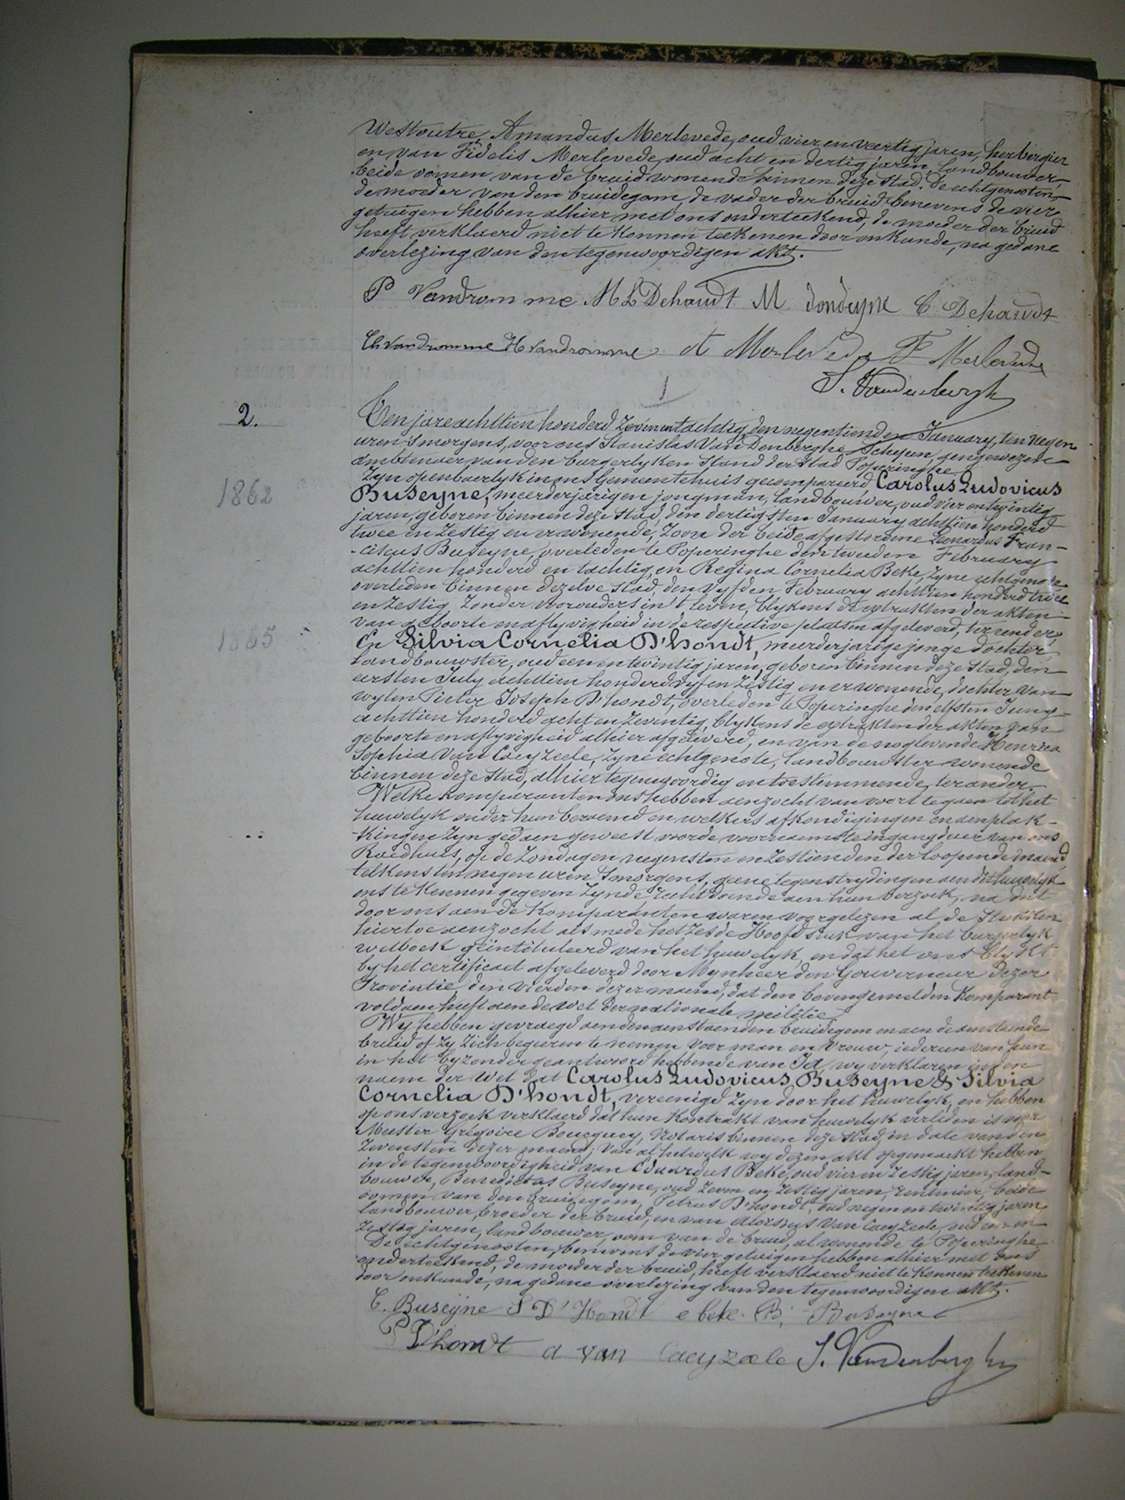 Westoutre, Amandus Merlevede, oud vier en veertig jaren, herbergier
en van Fidelis Merlevede, oud acht en dertig jaren, landbouwer,
beide oomen van de bruid wonende binnen deze stad. De echtgenooten,
de moeder van den bruidegom, de vader der bruid benevens de vier
getuigen hebben alhier met ons onderteekend, de moeder der bruid
heeft verklaerd niet te konnen teekenen door onkunde, na gedane
overlezing van den tegenwoordigen akt.
P Vandromme M L Dehandt M Dondeyne C Dehandt
Ch Vandromme H Vandromme A Merlevede F Merlevede
S. Vandenberghe
1
2.
Ten jare achttien honderd zeven en tachtig, den negentienden January, ten negen
uren 's morgens, voor ons Stanislas Van Denberghe Schepen, aengewezen
ambtenaer van den burgerlyken stand der stad Poperinghe
Zyn openbaerlyk in ons Gemeentehuis gecompareerd Carolus Ludovicus
1862
Buseyne, meerderjarigen jongman, landbouwer, oud vier en twintig
jaren, geboren binnen deze stad, den dertigsten January achttien honderd
twee en zestig en er wonende, zoon der beide afgestorvene Leonardus Fran-
ciscus Buseyne, overleden te Poperinghe den tweeden February
achttien honderd en tachtig, en Regina Cornelia Beke, zyne echtgenote
overleden binnen dezelve stad, den vyfden February achttien honderd twee
en zestig, zonder voorouders in 't leven, blykens de extrakten der akten
van geboorte en aflyvigheid in de respective plaetsen afgeleverd, ter eender
1865
En Silvia Cornelia D'hondt, meerderjarige jonge dochter,
landbouwster, oud een en twintig jaren, geboren binnen deze stad, den
eersten July achttien honderd vyf en zestig en er wonende, dochter van
wylen Pieter Joseph D'hondt, overleden te Poperinghe den elfsten Juny
achttien honderd acht en zeventig, blykens de extrakten der akten van
geboorte en aflyvigheid alhier afgeleverd, en van de nog levende Henrica
Sophia Van Caeyzeele, zyne echtgenote, landbouwster wonende
binnen deze stad, alhier tegenwoordig en toestemmende, ter ander.
Welke komparanten ons hebben aenzocht van voort te gaen tot het
huwelyk onder hun beraemd en welkers afkondigingen en aenplak-
kingen zyn gedaen geweest voor de voornaemste ingangdeur van ons
Raedhuis, op de Zondagen negensten en zestienden der loopende maend
telkens ten negen uren 's morgens, geene tegenstrydingen aen dit huwelyk
ons te kennen gegeven zynde recht doende aen hun verzoek, na dat
door ons aen de komparanten waren voorgelezen al de stukken
hiertoe aenzocht als mede het zesde Hoofdstuk van het burgerlyk
wetboek geïntituleerd van het huwelyk, en dat het ons blykt
by het certificaet afgeleverd door Mynheer den Gouverneur dezer
Provintie, den vierden dezer maend, dat den bovengemelden komparant
voldaen heeft aen de wet der nationale militie.
Wy hebben gevraegd aen den aenstaenden bruidegom en aen de aenstaende
bruid of zy zich begeeren te nemen voor man en vrouw, iedereen van hun
in het byzonder geantwoord hebbende van Ja, wy verklaren in den
naem der wet dat Carolus Ludovicus Buseyne & Silvia
Cornelia D'hondt, vereenigd zyn door het huwelyk, en hebben
op ons verzoek verklaerd dat hun kontrakt van huwelyk verleden is voor
Meester Grégoire Boucquey, Notaris binnen deze stad, in date van den
zevensten dezer maend, van al hetwelk wy dezen akt opgemaekt hebben
in de tegenwoordigheid van Eduardus Beke, oud vier en zestig jaren, land-
bouwer, Benedictus Buseyne, oud zeven en zestig jaren, rentenier, beide
oomen van den bruidegom, Petrus D'hondt, oud negen en twintig jaren,
landbouwer, broeder der bruid, en van Aloïsius Van Caeyzeele, oud een en
zestig jaren, landbouwer, oom van de bruid, al wonende te Poperinghe
De echtgenooten, benevens de vier getuigen hebben alhier met ons
onderteekend, de moeder der bruid, heeft verklaerd niet te konnen teekenen
door onkunde, na gedane overlezing van den tegenwoordigen akt.
C. Buseyne S D'Hondt e beke B. Buseyne
P Dhondt a van Caeyzeele S. Vandenberghe